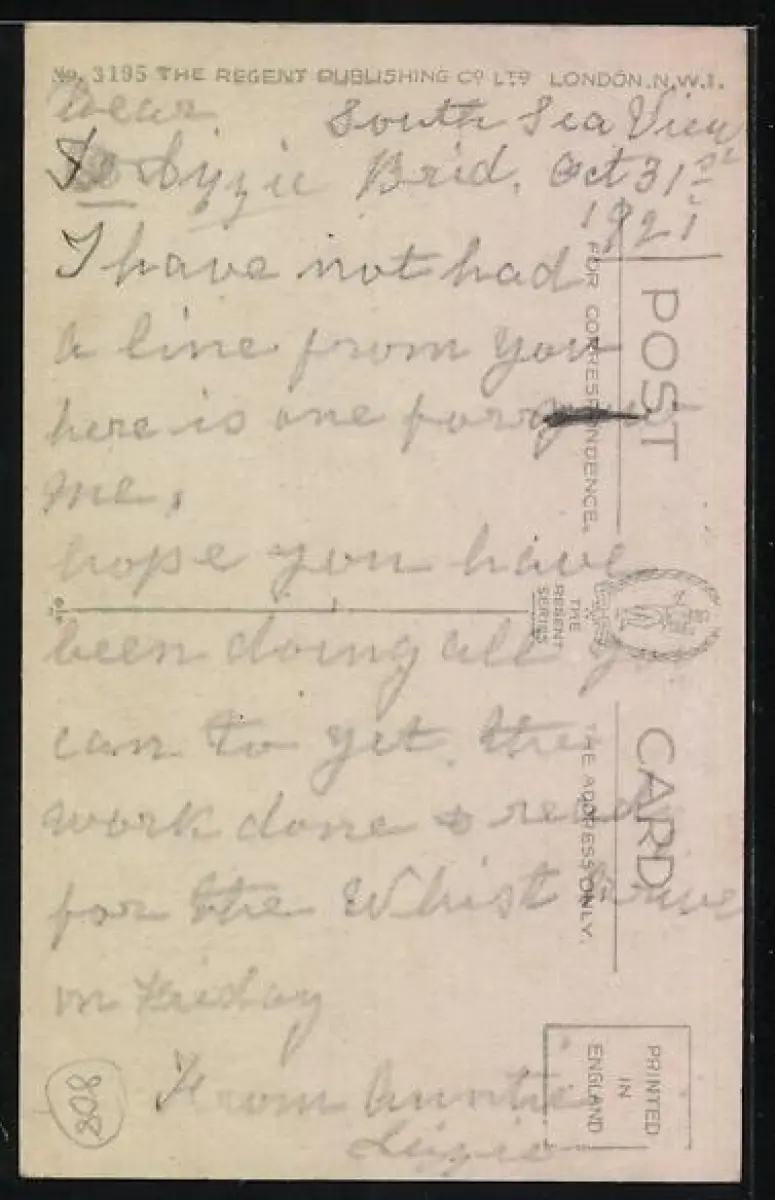 No. 3195 THE REGENT PUBLISHING Co LTD LONDON. N.W.1.
Dear South Sea View
Lizzie Brid. Oct 31st
1921
I have not had
a line from you
here is one for
me,
hope you have
been doing all
can to get the
work done &
for the Whist Drive
on Friday
From Auntie
Lizzie
808
POST CARD
FOR CORRESPONDENCE.
THE ADDRESS ONLY.
THE
REGENT
SERIES
PRINTED
IN
ENGLAND